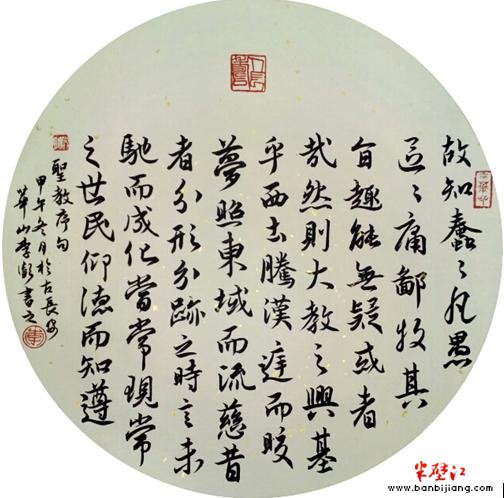 故知蠢々凡愚
區々庸鄙投其
旨趣能無疑或者
哉然則大教之興基
乎西土騰漢庭而皎
夢照東域而流慈昔
者分形分跡之時言未
馳而成化當常現常
之世民仰德而知遵
聖教序句
甲午冬月於古長安
華山李書之
半壁江
www.banbijiang.com